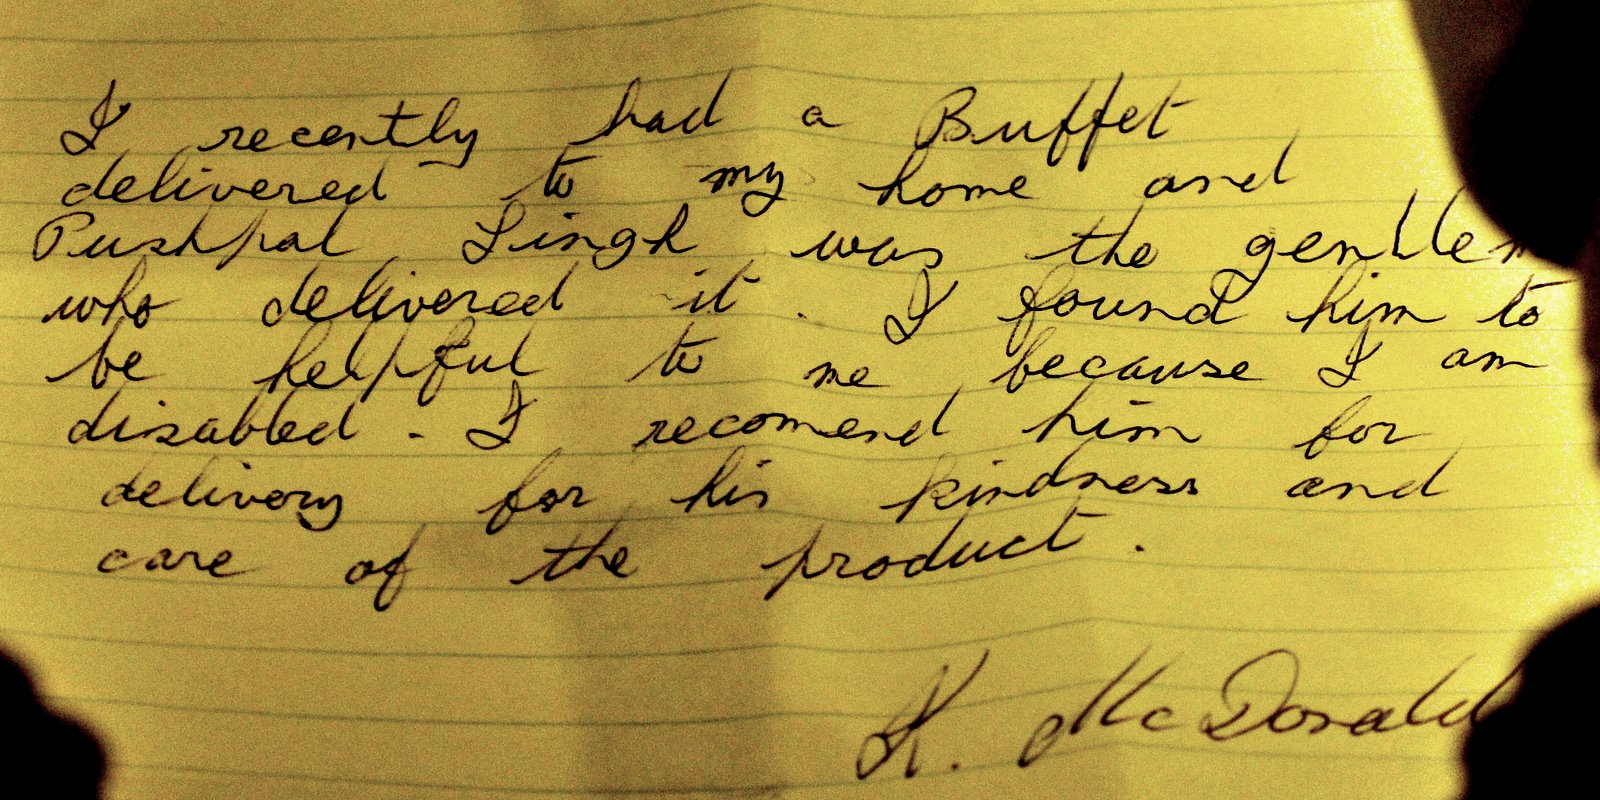 I recently had a Buffet
delivered to my home and
Pushpal Singh was the gentlem
who delivered it. I found him to
be helpful to me because I am
disabled. I recomend him for
delivery for his kindness and
care of the product.
K. McDonald